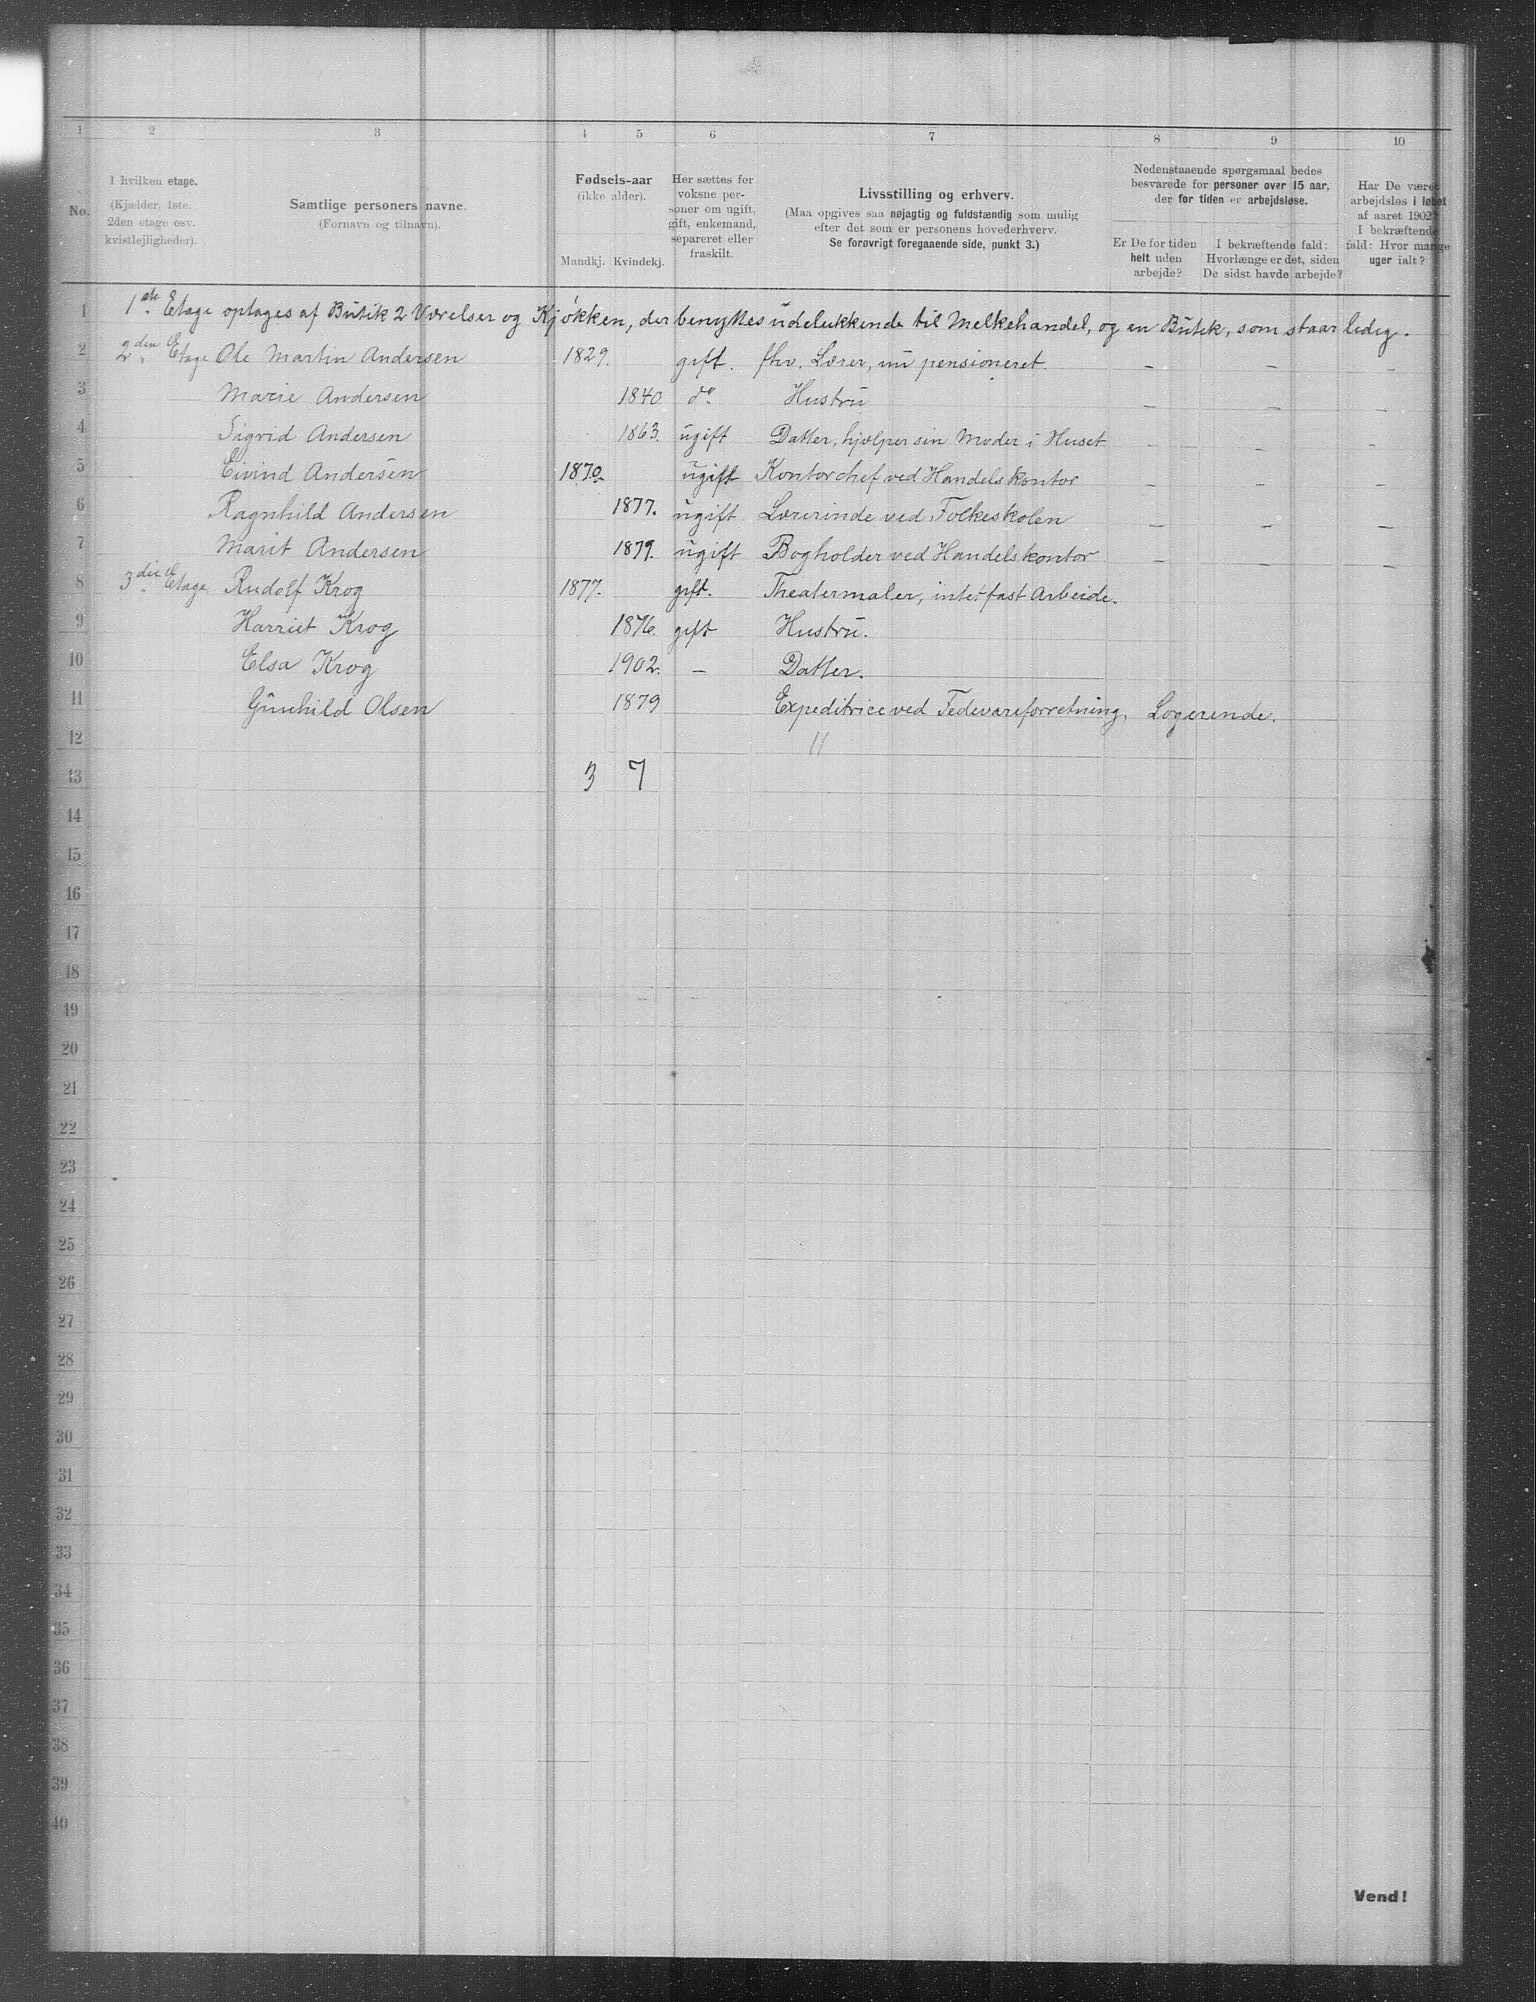 1 2 3 4 5 6 7 8 9 10
No.
I hvilken etage.
(Kjælder, 1ste.
2den etage osv.
kvistlejligheder).
Samtlige personers navne.
(Fornavn og tilnavn).
Fødsels-aar
(ikke alder).
Mandkj. Kvindekj.
Her sættes for
voksne per-
soner om ugift,
gift, enkemand,
separeret eller
fraskilt.
Livsstilling og erhverv.
(Maa opgives saa nøjagtig og fuldstændig som mulig
efter det som er personens hovederhverv.
Se forøvrigt foregaaende side, punkt 3.)
Nedenstaaende spørgsmaal bedes
besvarede for personer over 15 aar,
der for tiden er arbejdsløse.
Er De for tiden
helt uden
arbejde?
I bekræftende fald:
Hvorlænge er det, siden
De sidst havde arbejde?
Har De været
arbejdsløs i løbet
af aaret 1902?
I bekræftende
fald: Hvor mange
uger ialt?
1 1ste Etage optages af Butik 2 Værelser og Kjøkken, der benyttes udelukkende til Melkehandel, og en Butik, som staar ledig.
2 2den Etage Ole Martin Andersen 1829. gift. fhv. Lærer, nu pensioneret. – – –
3 Marie Andersen 1840 do Hustru – – –
4 Sigrid Andersen 1863. ugift Datter, hjælper sin Moder i Huset – – –
5 Eivind Andersen 1870 ugift Kontorchef ved Handelskontor – – –
6 Ragnhild Andersen 1877. ugift Lærerinde ved Folkeskolen – – –
7 Marit Andersen 1879. ugift Bogholder ved Handelskontor – – –
8 3die Etage Rudolf Krog 1877. gift. Theatermaler, intet fast Arbeide.
9 Harriet Krog 1876. gift Hustru.
10 Elsa Krog 1902. – Datter.
11 Gunhild Olsen 1879 Expeditrice ved Fedevareforretning, Logerende.
12 11
13 3 7
14
15
16
17
18
19
20
21
22
23
24
25
26
27
28
29
30
31
32
33
34
35
36
37
38
39
40
Vend!